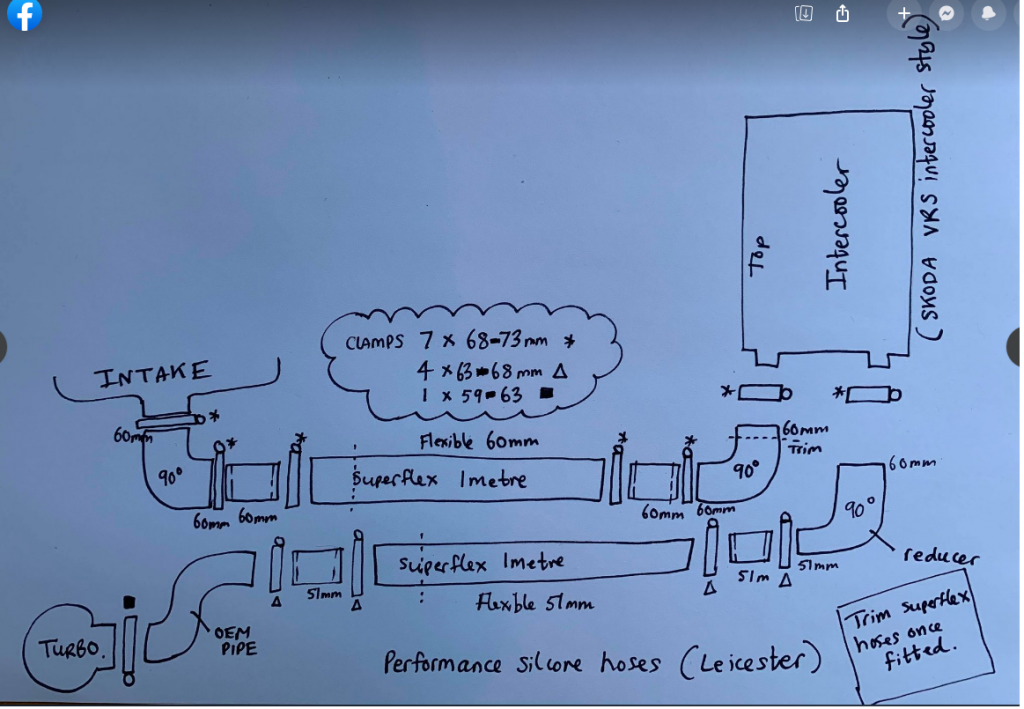 (SKODA VRS intercooler style)
Top
Intercooler
CLAMPS 7 x 68-73mm *
4 x 63-68mm Δ
1 x 59-63 ■
INTAKE
*
60mm
90°
*
*
Flexible 60mm
Superflex 1metre
*
*
*
*
60mm
Trim
90°
60mm
60mm
60mm
60mm
60mm
90°
reducer
Superflex 1metre
51mm
Flexible 51mm
51m
51mm
Δ
Δ
Δ
Δ
■
TURBO.
OEM
PIPE
Performance silcone hoses (Leicester)
Trim superflex
hoses once
fitted.